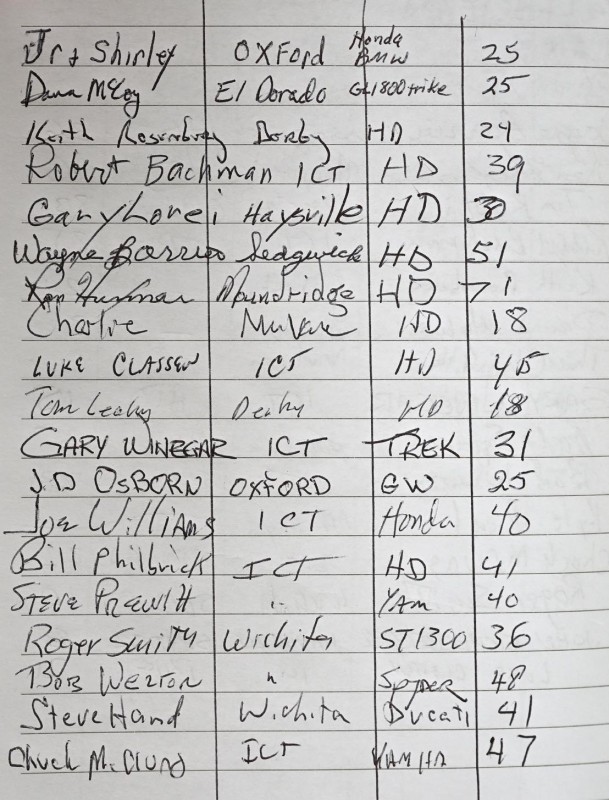 Jr & Shirley OXFord Honda BMW 25
Dana McCoy El Dorado GL1800trike 25
Keith Rosenburg Derby HD 29
Robert Bachman ICT HD 39
Gary Haysville HD 30
Wayne Sedgwick HD 51
Ron Moundridge HD 71
Charlie Mulvane HD 18
LUKE CLASSEN ICT HD 45
Tom Leahy Derby HD 18
GARY WINEGAR ICT TREK 31
J.D OSBORN OXFORD GW 25
Joe Williams ICT Honda 40
Bill Philbrick ICT HD 41
STEVE PREWITT " YAM 40
Roger Smith Wichita ST1300 36
BOB " Spyder 48
Steve Hand Wichita Ducati 41
Chuck McClung ICT YAMHA 47